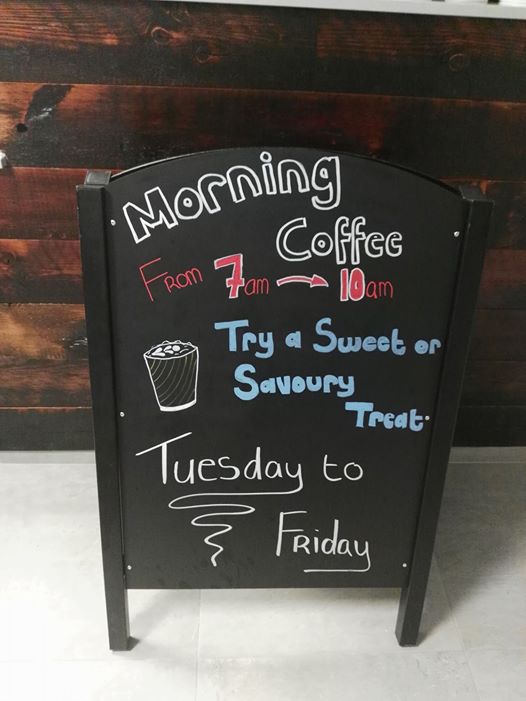 Morning
Coffee
From 7am → 10am
Try a Sweet or
Savoury
Treat
Tuesday to
Friday